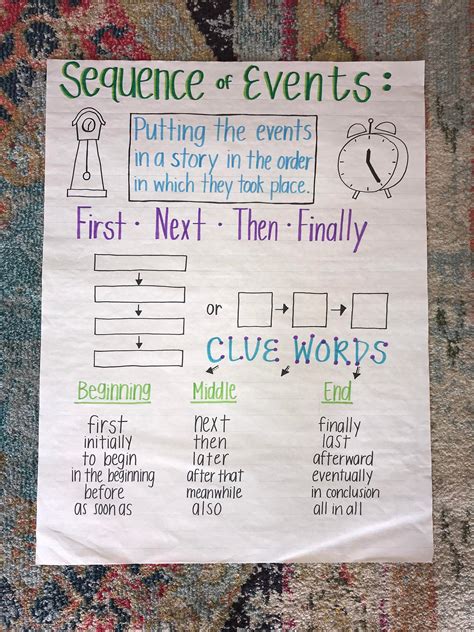 Sequence of Events:
Putting the events
in a story in the order
in which they took place.
First · Next · Then · Finally
or
CLUE WORDS
Beginning
first
initially
to begin
in the beginning
before
as soon as
Middle
next
then
later
after that
meanwhile
also
End
finally
last
afterward
eventually
in conclusion
all in all